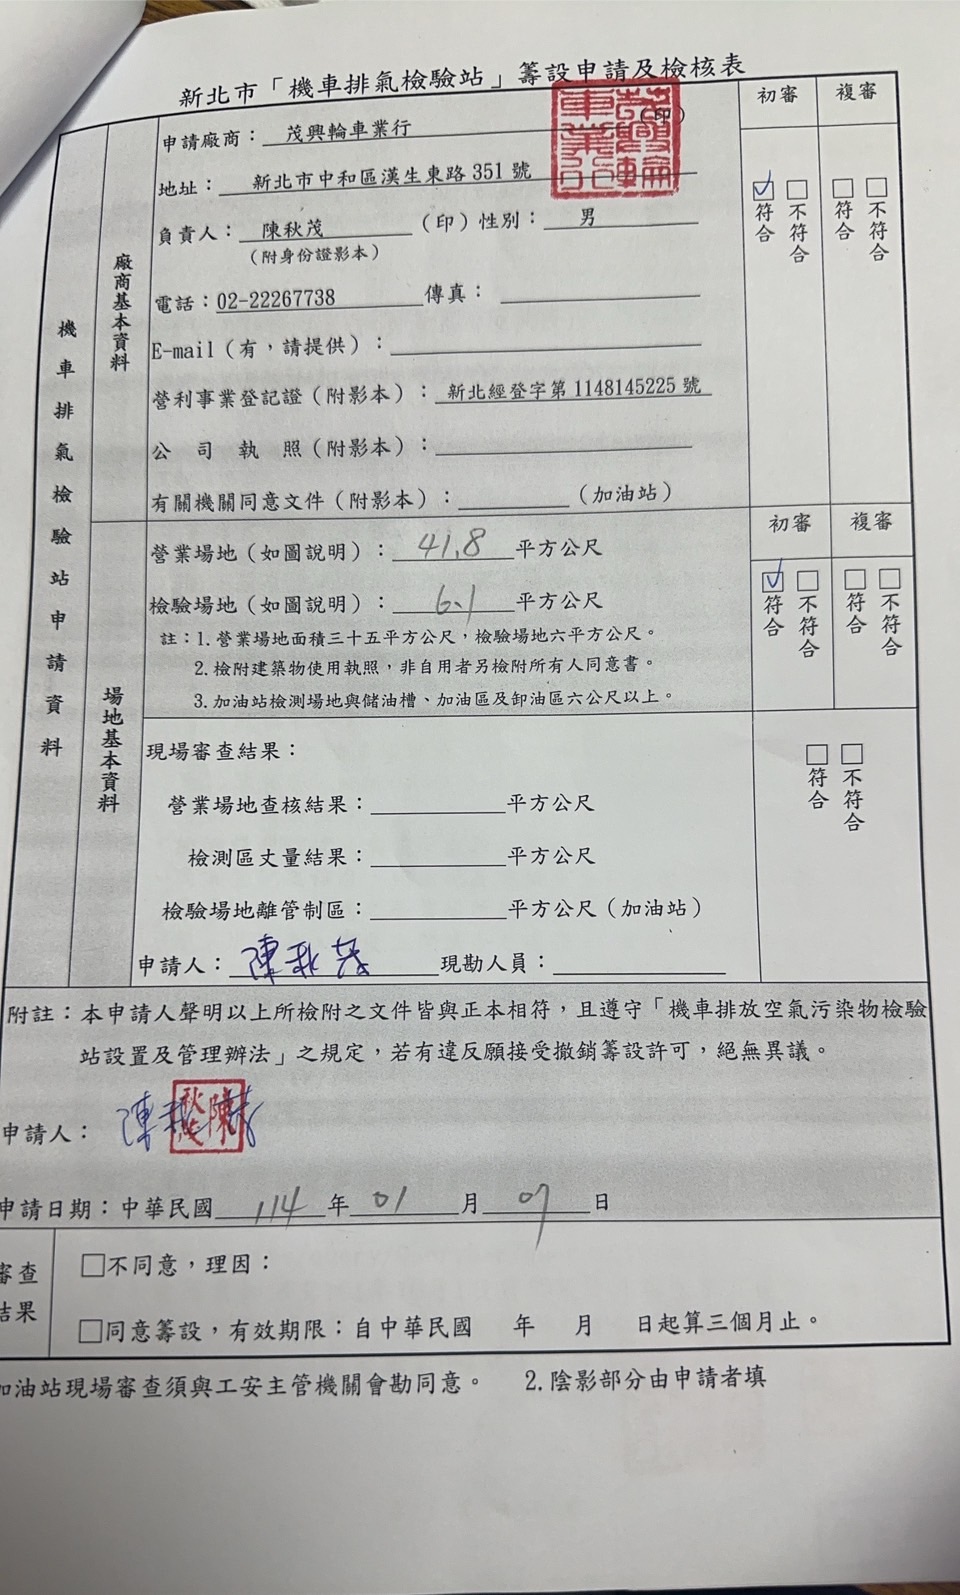 新北市「機車排氣檢驗站」籌設申請及檢核表
機車排氣檢驗站申請資料
廠商基本資料
申請廠商：茂興輪車業行 (印)
地址：新北市中和區漢生東路 351 號
負責人：陳秋茂 (印) 性別：男
(附身份證影本)
電話：02-22267738 傳真：
E-mail (有，請提供)：
營利事業登記證 (附影本)：新北經登字第 1148145225 號
公司執照 (附影本)：
有關機關同意文件 (附影本)： (加油站)
初審 複審
☑符合 □不符合 □符合 □不符合
場地基本資料
營業場地 (如圖說明)：41.8 平方公尺
檢驗場地 (如圖說明)：6.1 平方公尺
註：1.營業場地面積三十五平方公尺，檢驗場地六平方公尺。
2.檢附建築物使用執照，非自用者另檢附所有人同意書。
3.加油站檢測場地與儲油槽、加油區及卸油區六公尺以上。
初審 複審
☑符合 □不符合 □符合 □不符合
現場審查結果：
營業場地查核結果： 平方公尺
檢測區丈量結果： 平方公尺
檢驗場地離管制區： 平方公尺 (加油站)
□符合 □不符合
申請人：陳秋茂 現勘人員：
附註：本申請人聲明以上所檢附之文件皆與正本相符，且遵守「機車排放空氣污染物檢驗
站設置及管理辦法」之規定，若有違反願接受撤銷籌設許可，絕無異議。
申請人：陳秋茂
陳秋茂
申請日期：中華民國 114 年 01 月 07 日
審查
結果
□不同意，理因：
□同意籌設，有效期限：自中華民國 年 月 日起算三個月止。
加油站現場審查須與工安主管機關會勘同意。 2.陰影部分由申請者填